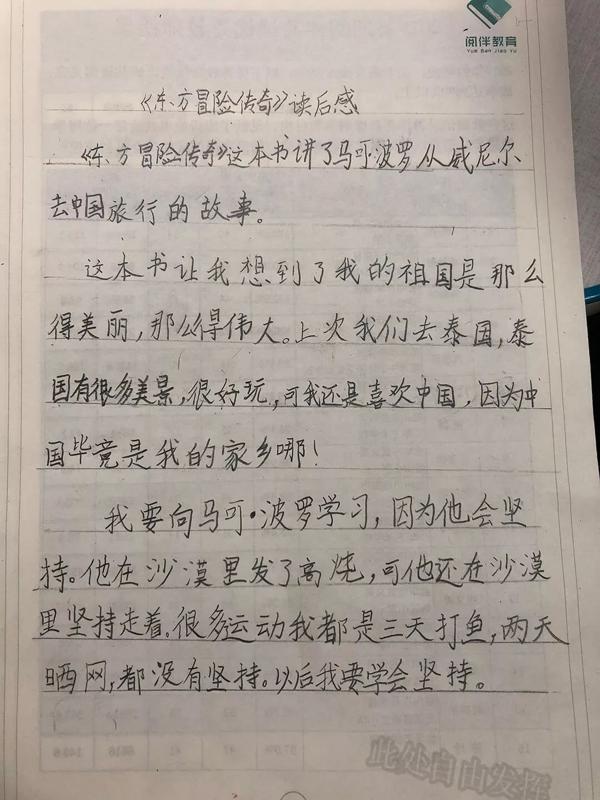 阅伴教育
Yue Ban Jiao Yu
《东方冒险传奇》读后感
《东方冒险传奇》这本书讲了马可·波罗从威尼尔
去中国旅行的故事。
这本书让我想到了我的祖国是那么
得美丽,那么得伟大。上次我们去泰国,泰
国有很多美景,很好玩,可我还是喜欢中国,因为中
国毕竟是我的家乡哪!
我要向马可·波罗学习,因为他会坚
持。他在沙漠里发了高烧,可他还在沙漠
里坚持走着。很多运动我都是三天打鱼,两天
晒网,都没有坚持。以后我要学会坚持。
此处自由发挥